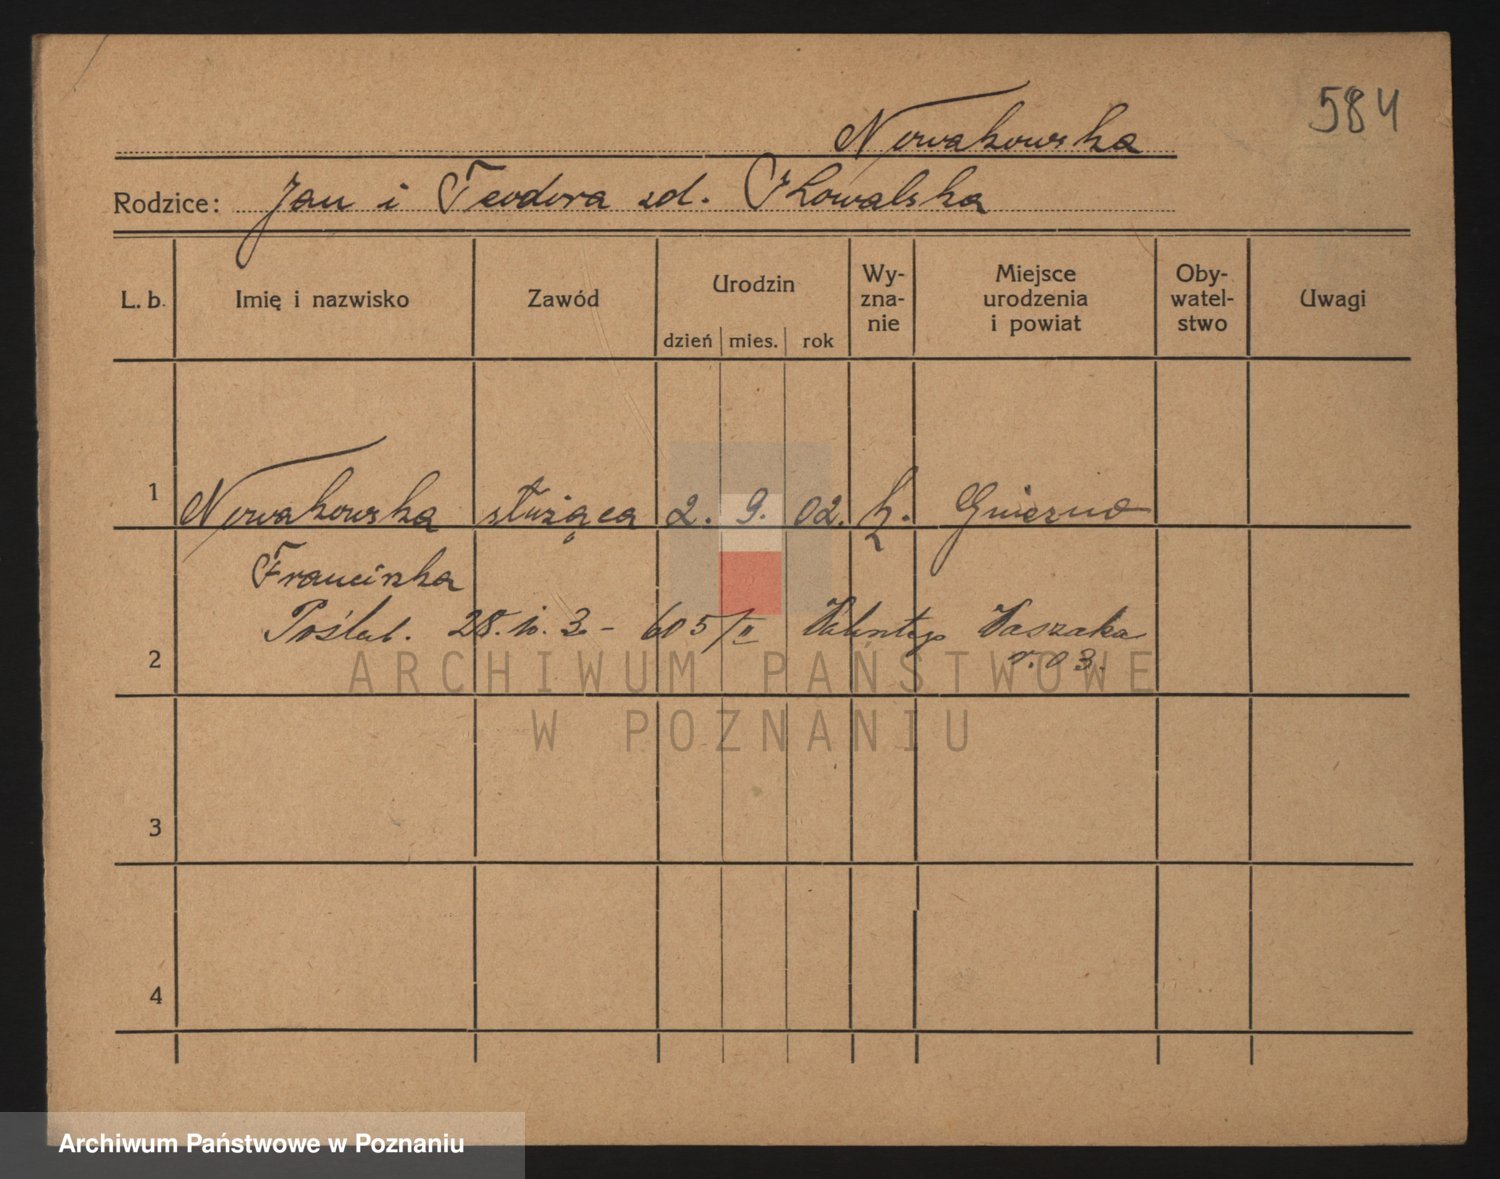 584
Nowakowska
Rodzice: Jan i Teodora zd. Kowalska
L. b. Imię i nazwisko Zawód Urodzin dzień mies. rok Wy-zna-nie Miejsce urodzenia i powiat Oby-watel-stwo Uwagi
1 Nowakowska służąca 2. 9. 02. k. Gniezno
Franciszka
Poślub. 28. 10. 3. - 605/II Walentego Waszaka
2 r. 03.
ARCHIWUM PAŃSTWOWE
W POZNANIU
3
4
Archiwum Państwowe w Poznaniu